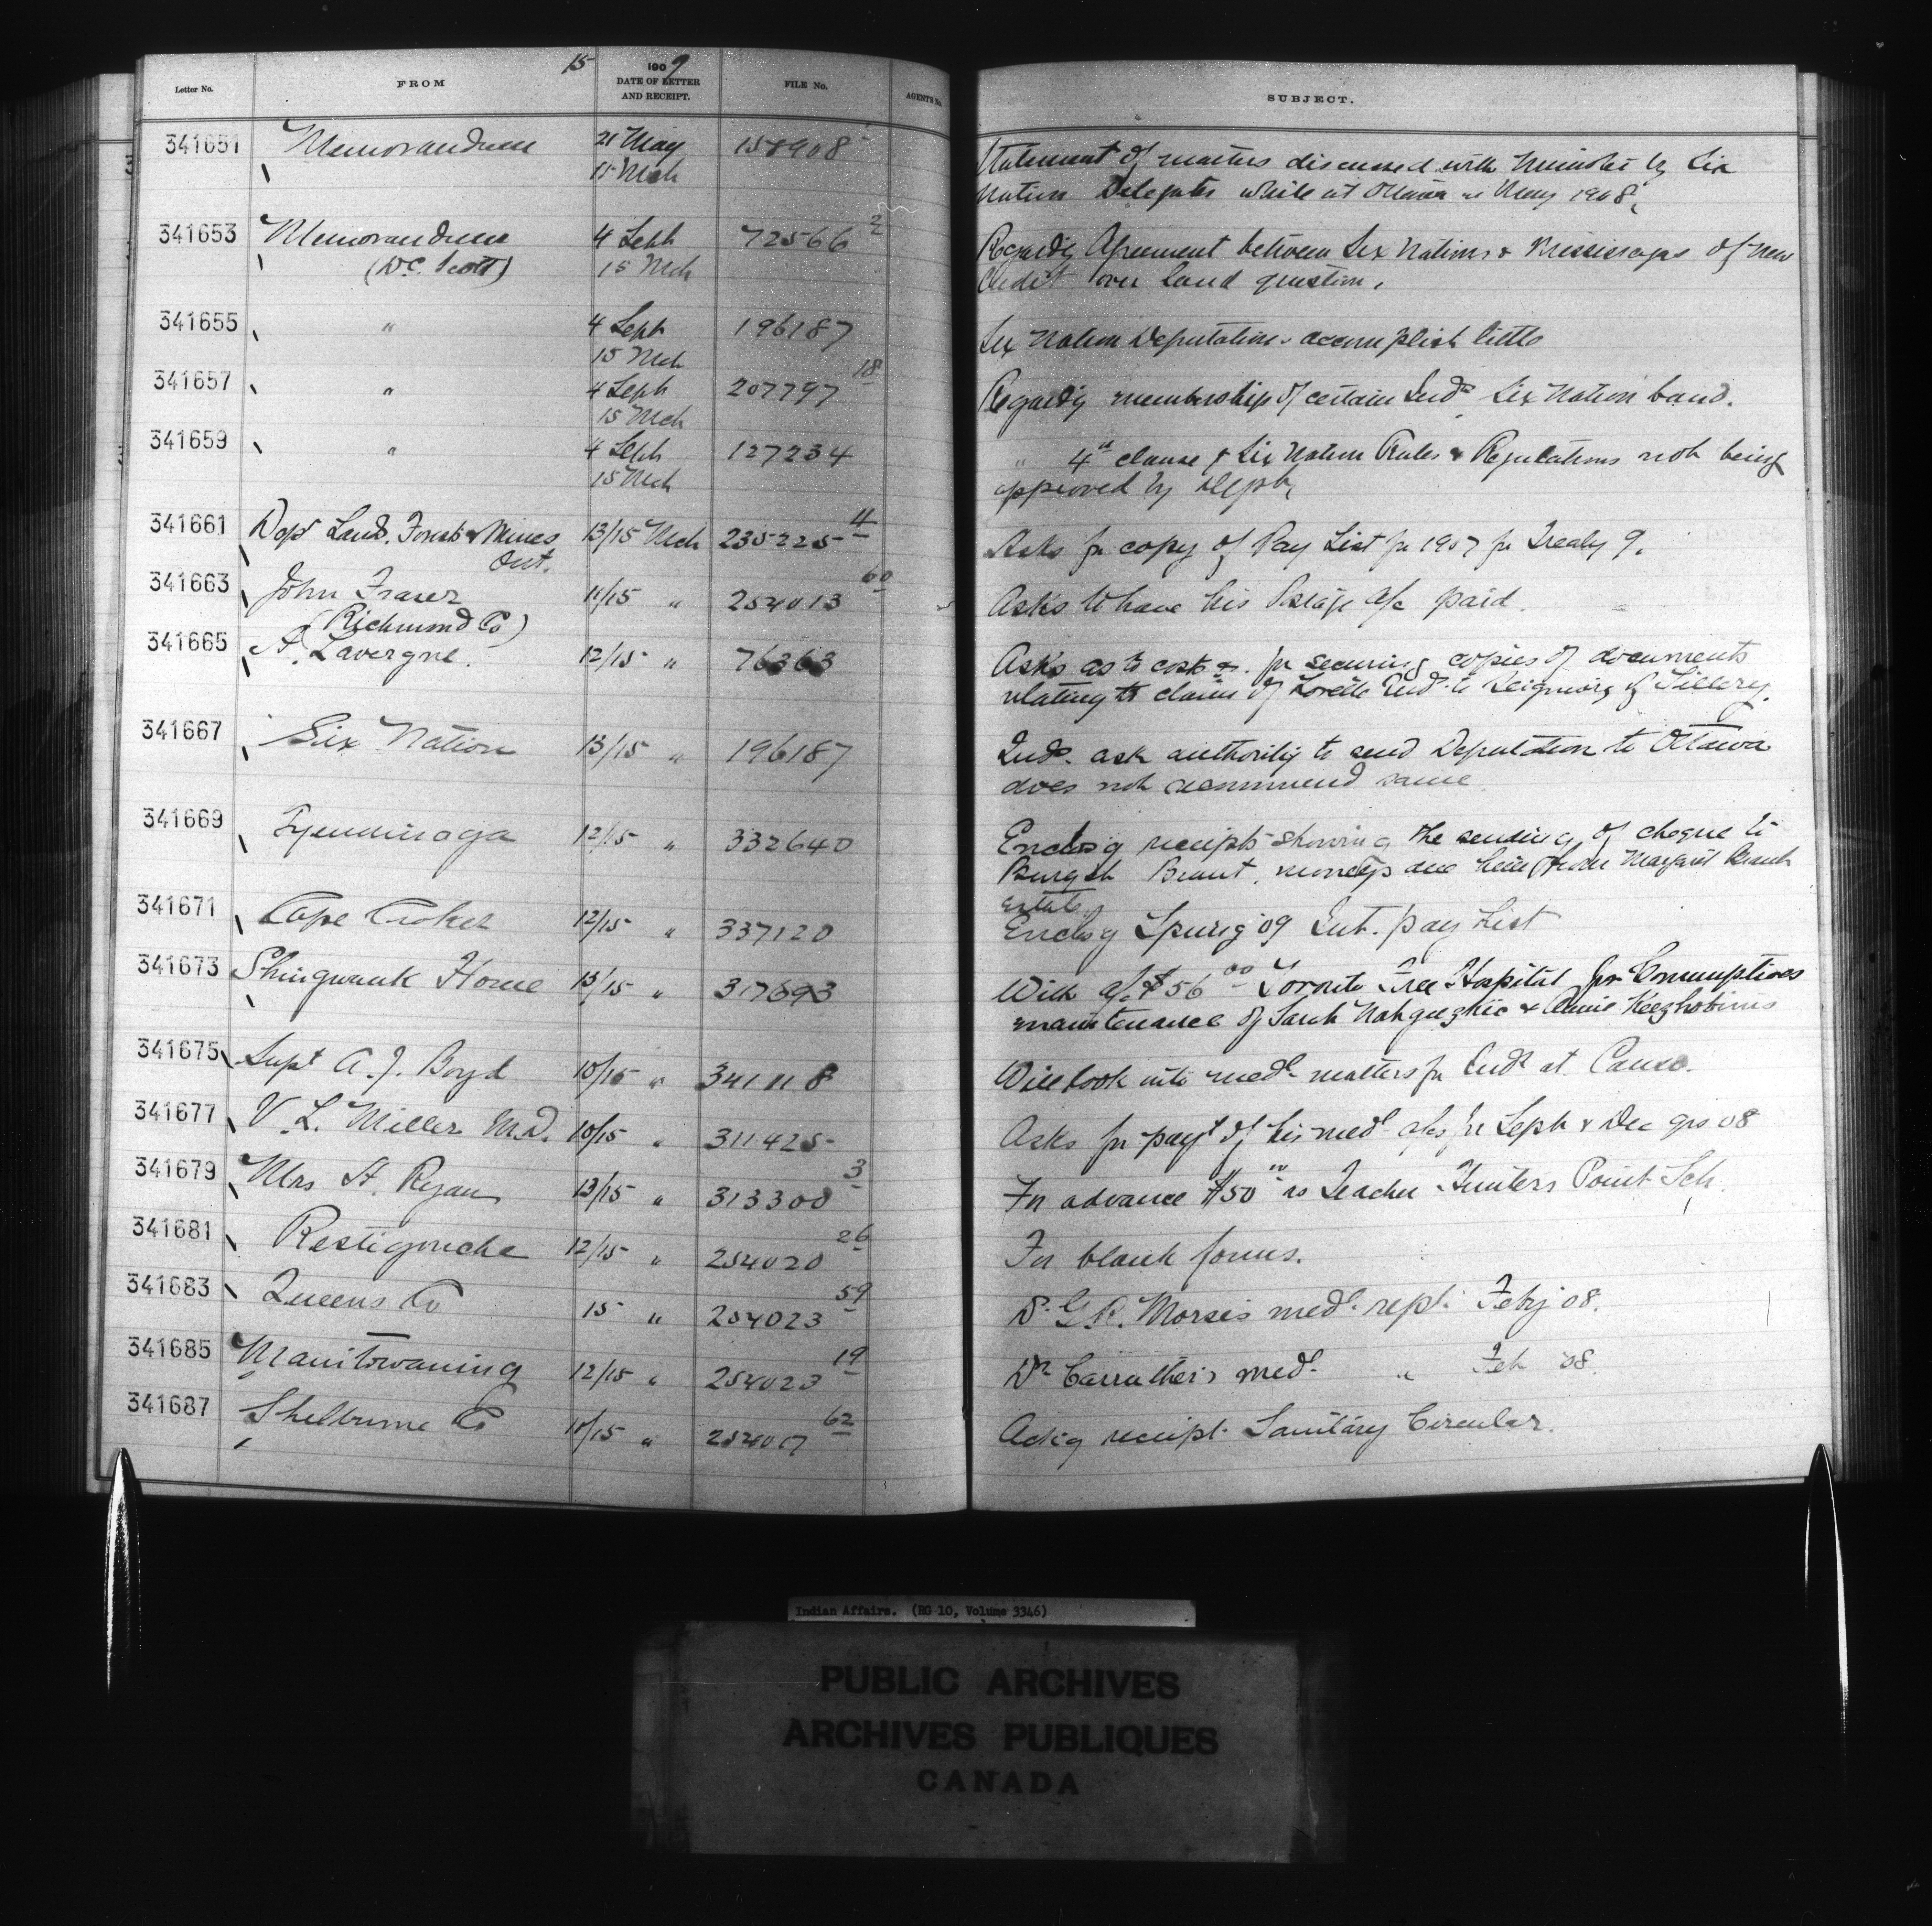 15
Letter No. FROM 1909 DATE OF LETTER AND RECEIPT. FILE No. AGENT'S No. SUBJECT.
341651 Memorandum 21 May 158908 Statement of matters discussed with Minister by Six
15 Mch Nation Delegates while at Ottawa in May 1908.
341653 Memorandum 4 Sept 72566 2 Regardg Agreement between Six Nations & Mississagas of New
(D.C. Scott) 15 Mch Credit over land question.
341655 " 4 Sept 196187 Six Nation Deputations accomplish little
15 Mch
341657 " 4 Sept 207797 18 Regardg membership of certain Inds Six Nation band.
15 Mch
341659 " 4 Sept 127234 " 4th clause of Six Nation Rules & Regulations not being
15 Mch approved by Dept.
341661 Dept Land, Forests & Mines 13/15 Mch 235225 4 Asks for copy of Pay List for 1907 for Treaty 9.
Ont.
341663 John Fraser 11/15 " 254013 60 Asks to have his Postage a/c paid.
(Richmond Co)
341665 A. Lavergne. 12/15 " 76363 Asks as to cost &c. for securing copies of documents
relating to claim of Lorette Inds to Seigniory of Sillery.
341667 Six Nation 13/15 " 196187 Inds. ask authority to send Deputation to Ottawa
does not recommend same.
341669 Tyendinaga 12/15 " 332640 Enclosg receipts showing the sending of cheque to
Brant, moneys due him from Margaret Brant
estate.
341671 Cape Croker 12/15 " 337120 Enclosg Spring '09 Int. pay List
341673 Shingwauk Home 13/15 " 317693 With a/c $56 00 Toronto Free Hospital for Consumptives
maintenance of Sarah Nahgueghic & Annie Keeghobinus
341675 Supt A. J. Boyd 10/15 " 341118 Will look into medl matters for Inds at Canso.
341677 V. L. Miller M.D. 10/15 " 311425 Asks for payt of his medl a/cs for Sept & Dec qrs 08
341679 Mrs A. Ryan 13/15 " 313300 3 For advance $50 00 as Teacher Hunters Point Sch.
341681 Restigouche 12/15 " 254020 26 For blank forms.
341683 Queens Co 15 " 254023 59 Dr G.R. Morse's medl. rept. Feby 08.
341685 Manitowaning 12/15 " 254023 19 Dr Carruthers medl. " Feb 08.
341687 Shelburne Co 11/15 " 254017 62 Ackg receipt Sanitary Circular.
Indian Affairs. (RG 10, Volume 3346)
PUBLIC ARCHIVES
ARCHIVES PUBLIQUES
CANADA